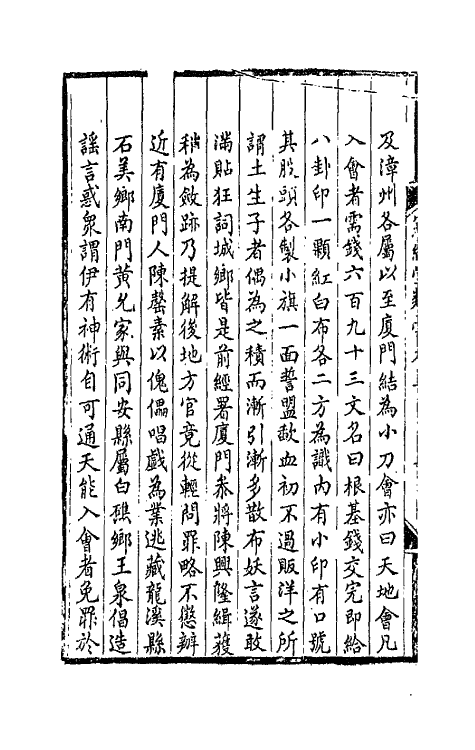 及漳州各屬以至廈門結為小刀會亦曰天地會凡
入會者需錢六百九十三文名曰根基錢交完即給
八卦印一顆紅白布各二方為識內有小印有口號
其股頭各製小旗一面誓盟歃血初不過販洋之所
謂土生子者偶為之積而漸引漸多散布妖言遂敢
滿貼狂詞城鄉皆是前經署廈門叅將陳興隆緝獲
稍為斂跡乃提解後地方官竟從輕問罪略不懲辦
近有廈門人陳罄素以傀儡唱戲為業逃藏龍溪縣
石美鄉南門黃允家與同安縣屬白礁鄉王泉倡造
謠言惑眾謂伊有神術自可通天能入會者免罪於